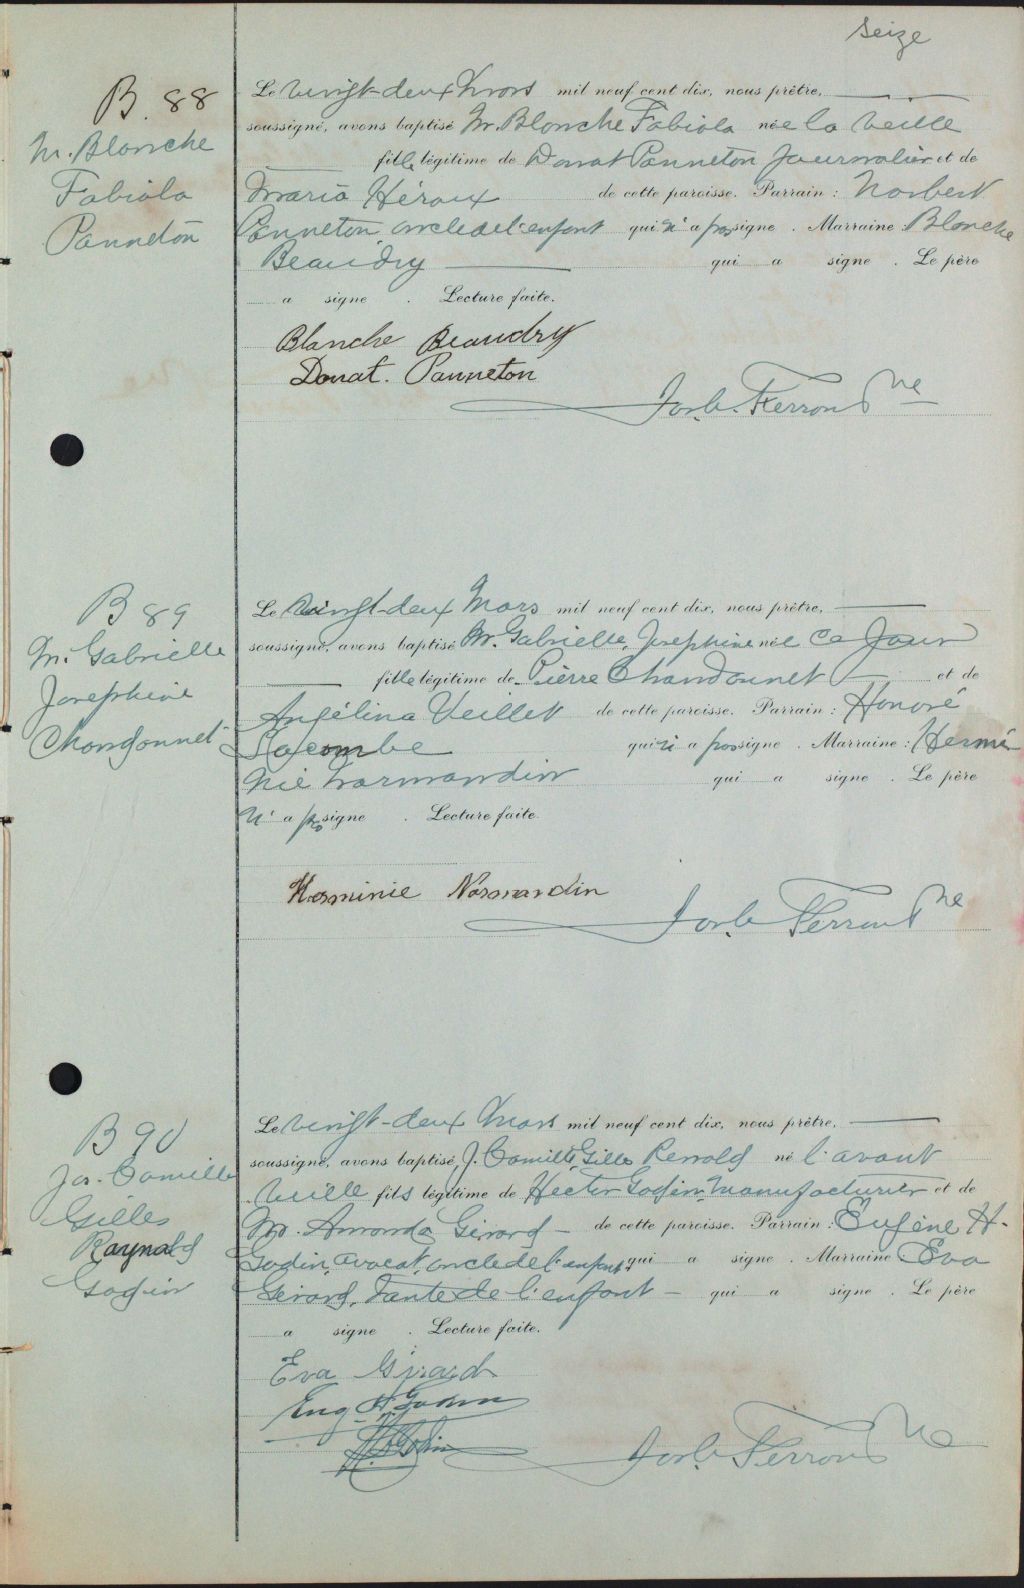 seize
B. 88
M. Blanche
Fabiola
Panneton
Le vingt-deux Mars mil neuf cent dix, nous prêtre,
soussigné, avons baptisé M. Blanche Fabiola née la veille
fille légitime de Donat Panneton journalier et de
Maria Héroux de cette paroisse. Parrain : Norbert
Panneton oncle de l'enfant qui n'a pas signé. Marraine : Blanche
Beaudry qui a signé. Le père
a signé. Lecture faite.
Blanche Beaudry
Donat. Panneton
Jos. Ferron Ptre
B 89
M. Gabrielle
Josephine
Chandonnet
Le vingt-deux Mars mil neuf cent dix, nous prêtre,
soussigné, avons baptisé M. Gabrielle, Josephine née ce jour
fille légitime de Pierre Chandonnet et de
Angélina Veillet de cette paroisse. Parrain : Honoré
Lacombe qui n'a pas signé. Marraine : Hermi
nie Normandin qui a signé. Le père
n'a pas signé. Lecture faite.
Herminie Normandin
Jos. Ferron Ptre
B 90
Jos. Camille
Gilles
Raynald
Godin
Le vingt-deux Mars mil neuf cent dix, nous prêtre,
soussigné, avons baptisé J. Camille Gilles Renald né l'avant
veille fils légitime de Hector Godin manufacturier et de
M. Amanda Girard de cette paroisse. Parrain : Eugène H.
Godin, avocat, oncle de l'enfant qui a signé. Marraine : Eva
Girard, tante de l'enfant qui a signé. Le père
a signé. Lecture faite.
Eva Girard
Eug H. Godin
H. Godin
Jos. Ferron Ptre